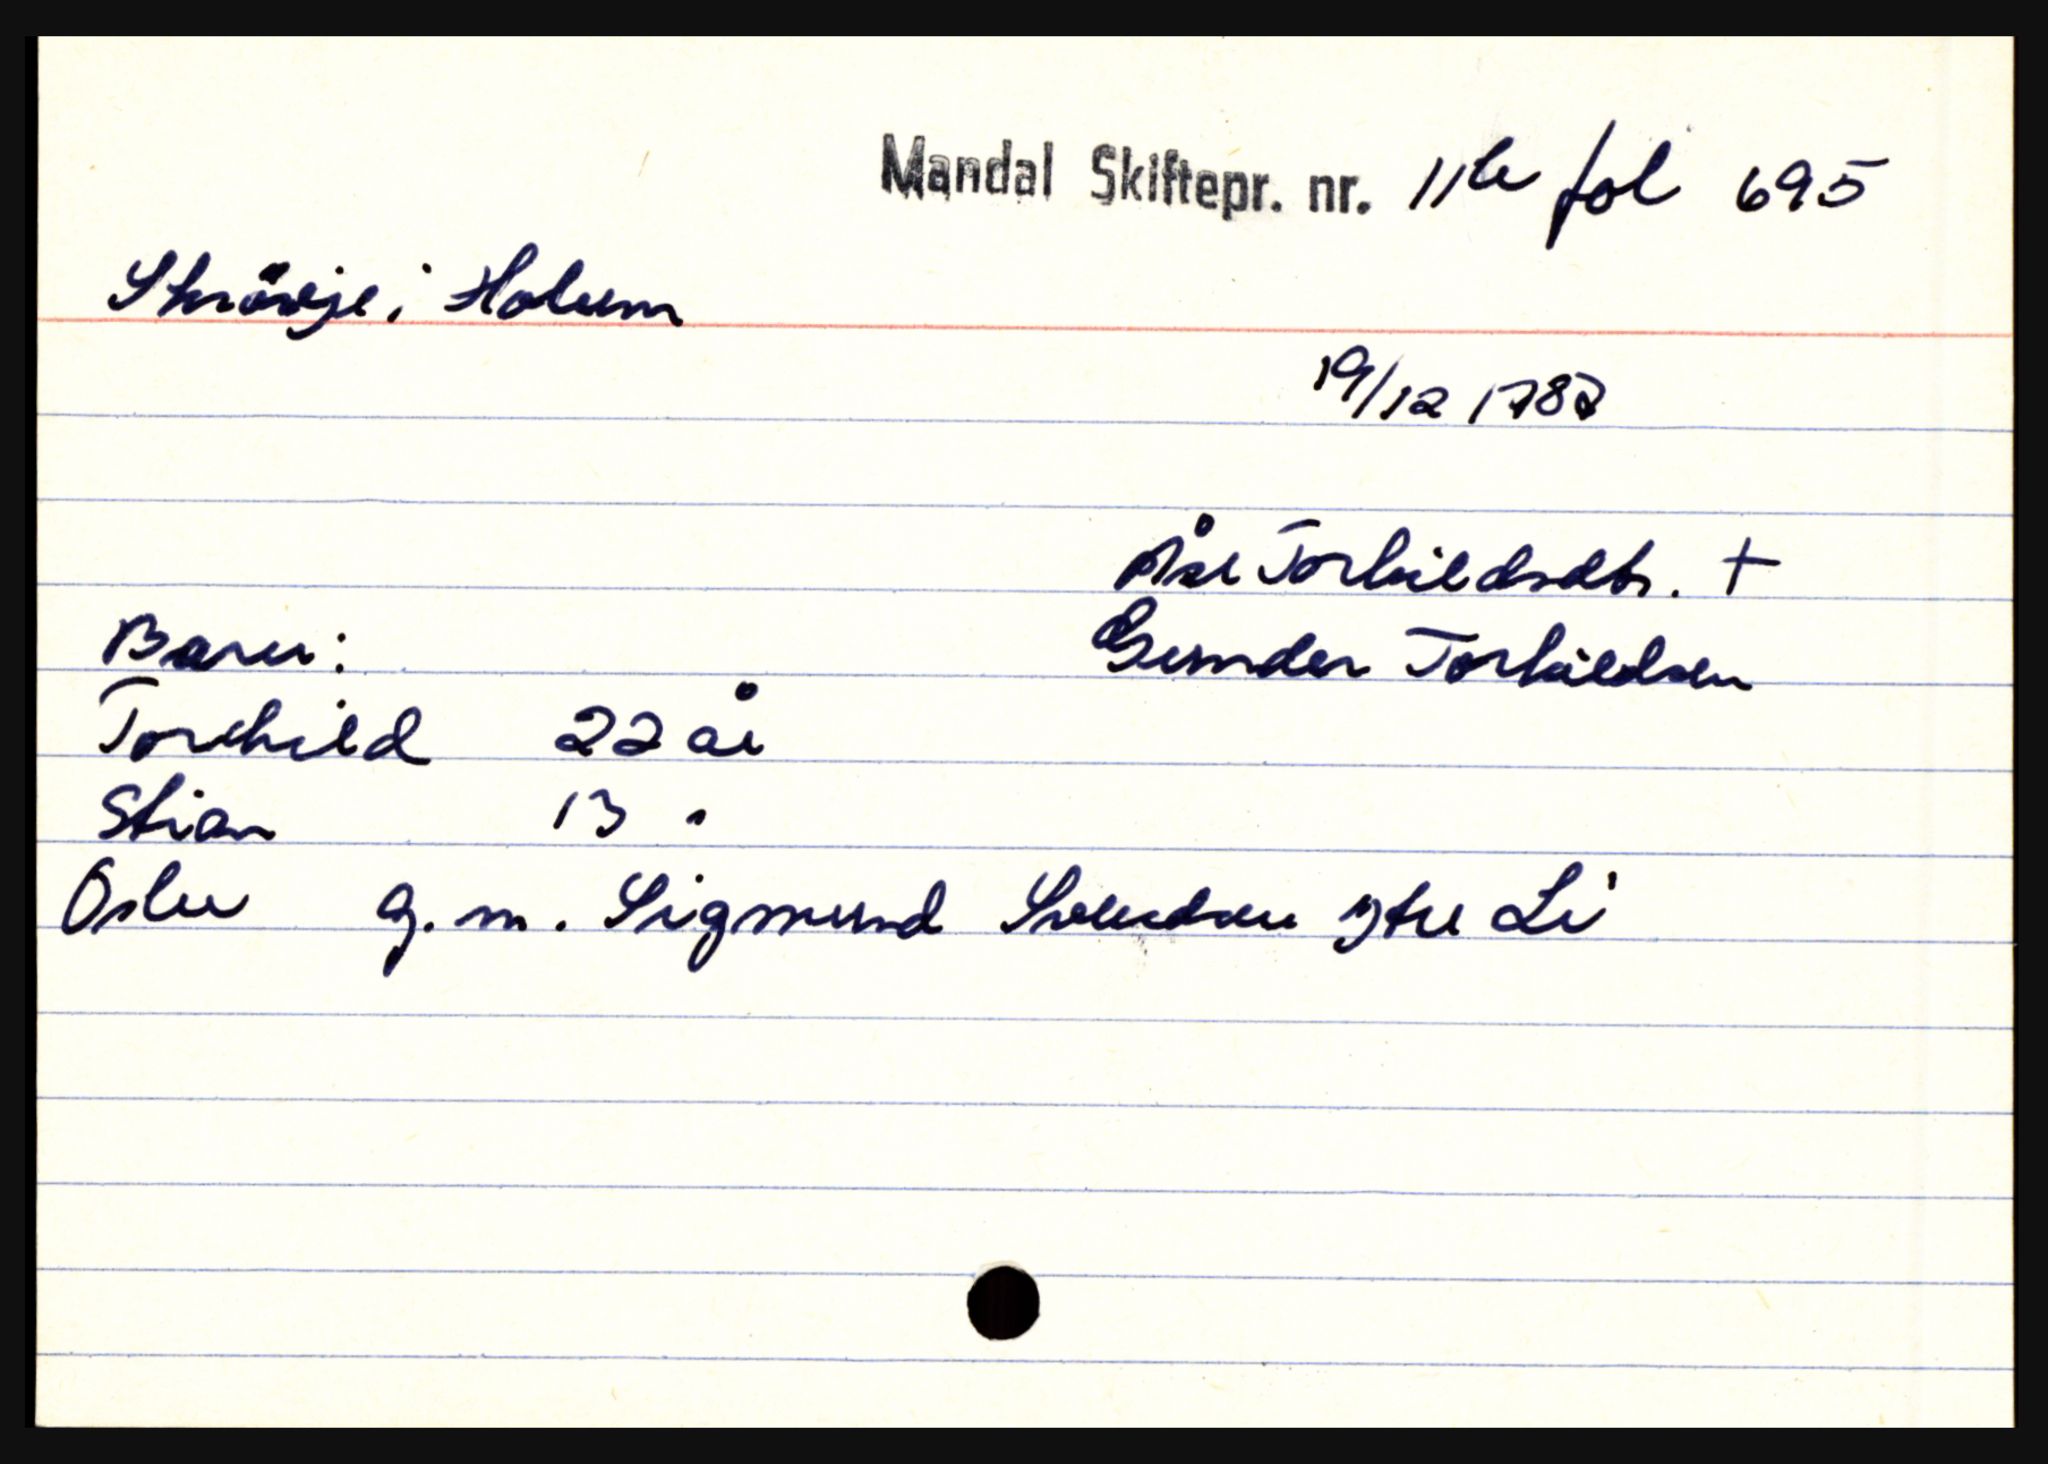 Mandal Skiftepr. nr. 11b fol 695
Skrövje i Holum
19/12 1787
Åse Torkildsdtr. +
Gunder Torkildsen
Barn:
Torchild 22 år
Stian 13 "
Oslee g. m. Sigmund Svendsen ytre Li